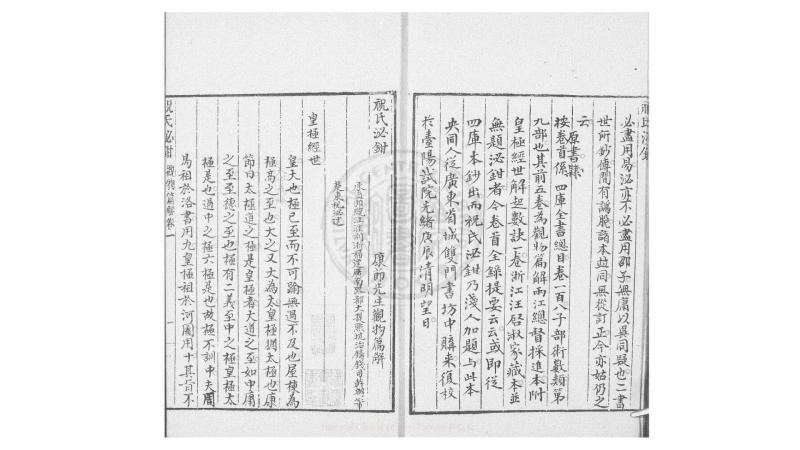 必盡用易泌亦不必盡用邵子無庸以異同疑也二書
世所鈔傳間有譌脫諸本竝同無從訂正今亦姑仍之
云原書隸
按卷首係四庫全書總目卷一百八子部術數類第
九部也其前五卷為觀物篇解兩江總督採進本附
皇極經世解起數訣一卷浙江汪啓淑家藏本並
無題泌鉗者今卷首全錄提要云云或即從
四庫本鈔出而祝氏泌鉗乃淺人加題與此本
央同人從廣東省城雙門書坊中購來復校
於臺陽試院光緒庚辰清明望日
祝氏泌鉗
康節先生觀物篇解
皇極經世
皇大也極已至而不可踰無過不及也屋棟為
極高之至也大之又大為太皇極猶太極也康
節曰太極道之極是皇極者大道之至如中庸
之至至德之至也極有二義至中之極皇極太
極是也過中之極六極是也故極不訓中夫周
易祖於洛書用九皇極祖於河圖用十其旨不
祝氏泌鉗 觀物篇解卷一